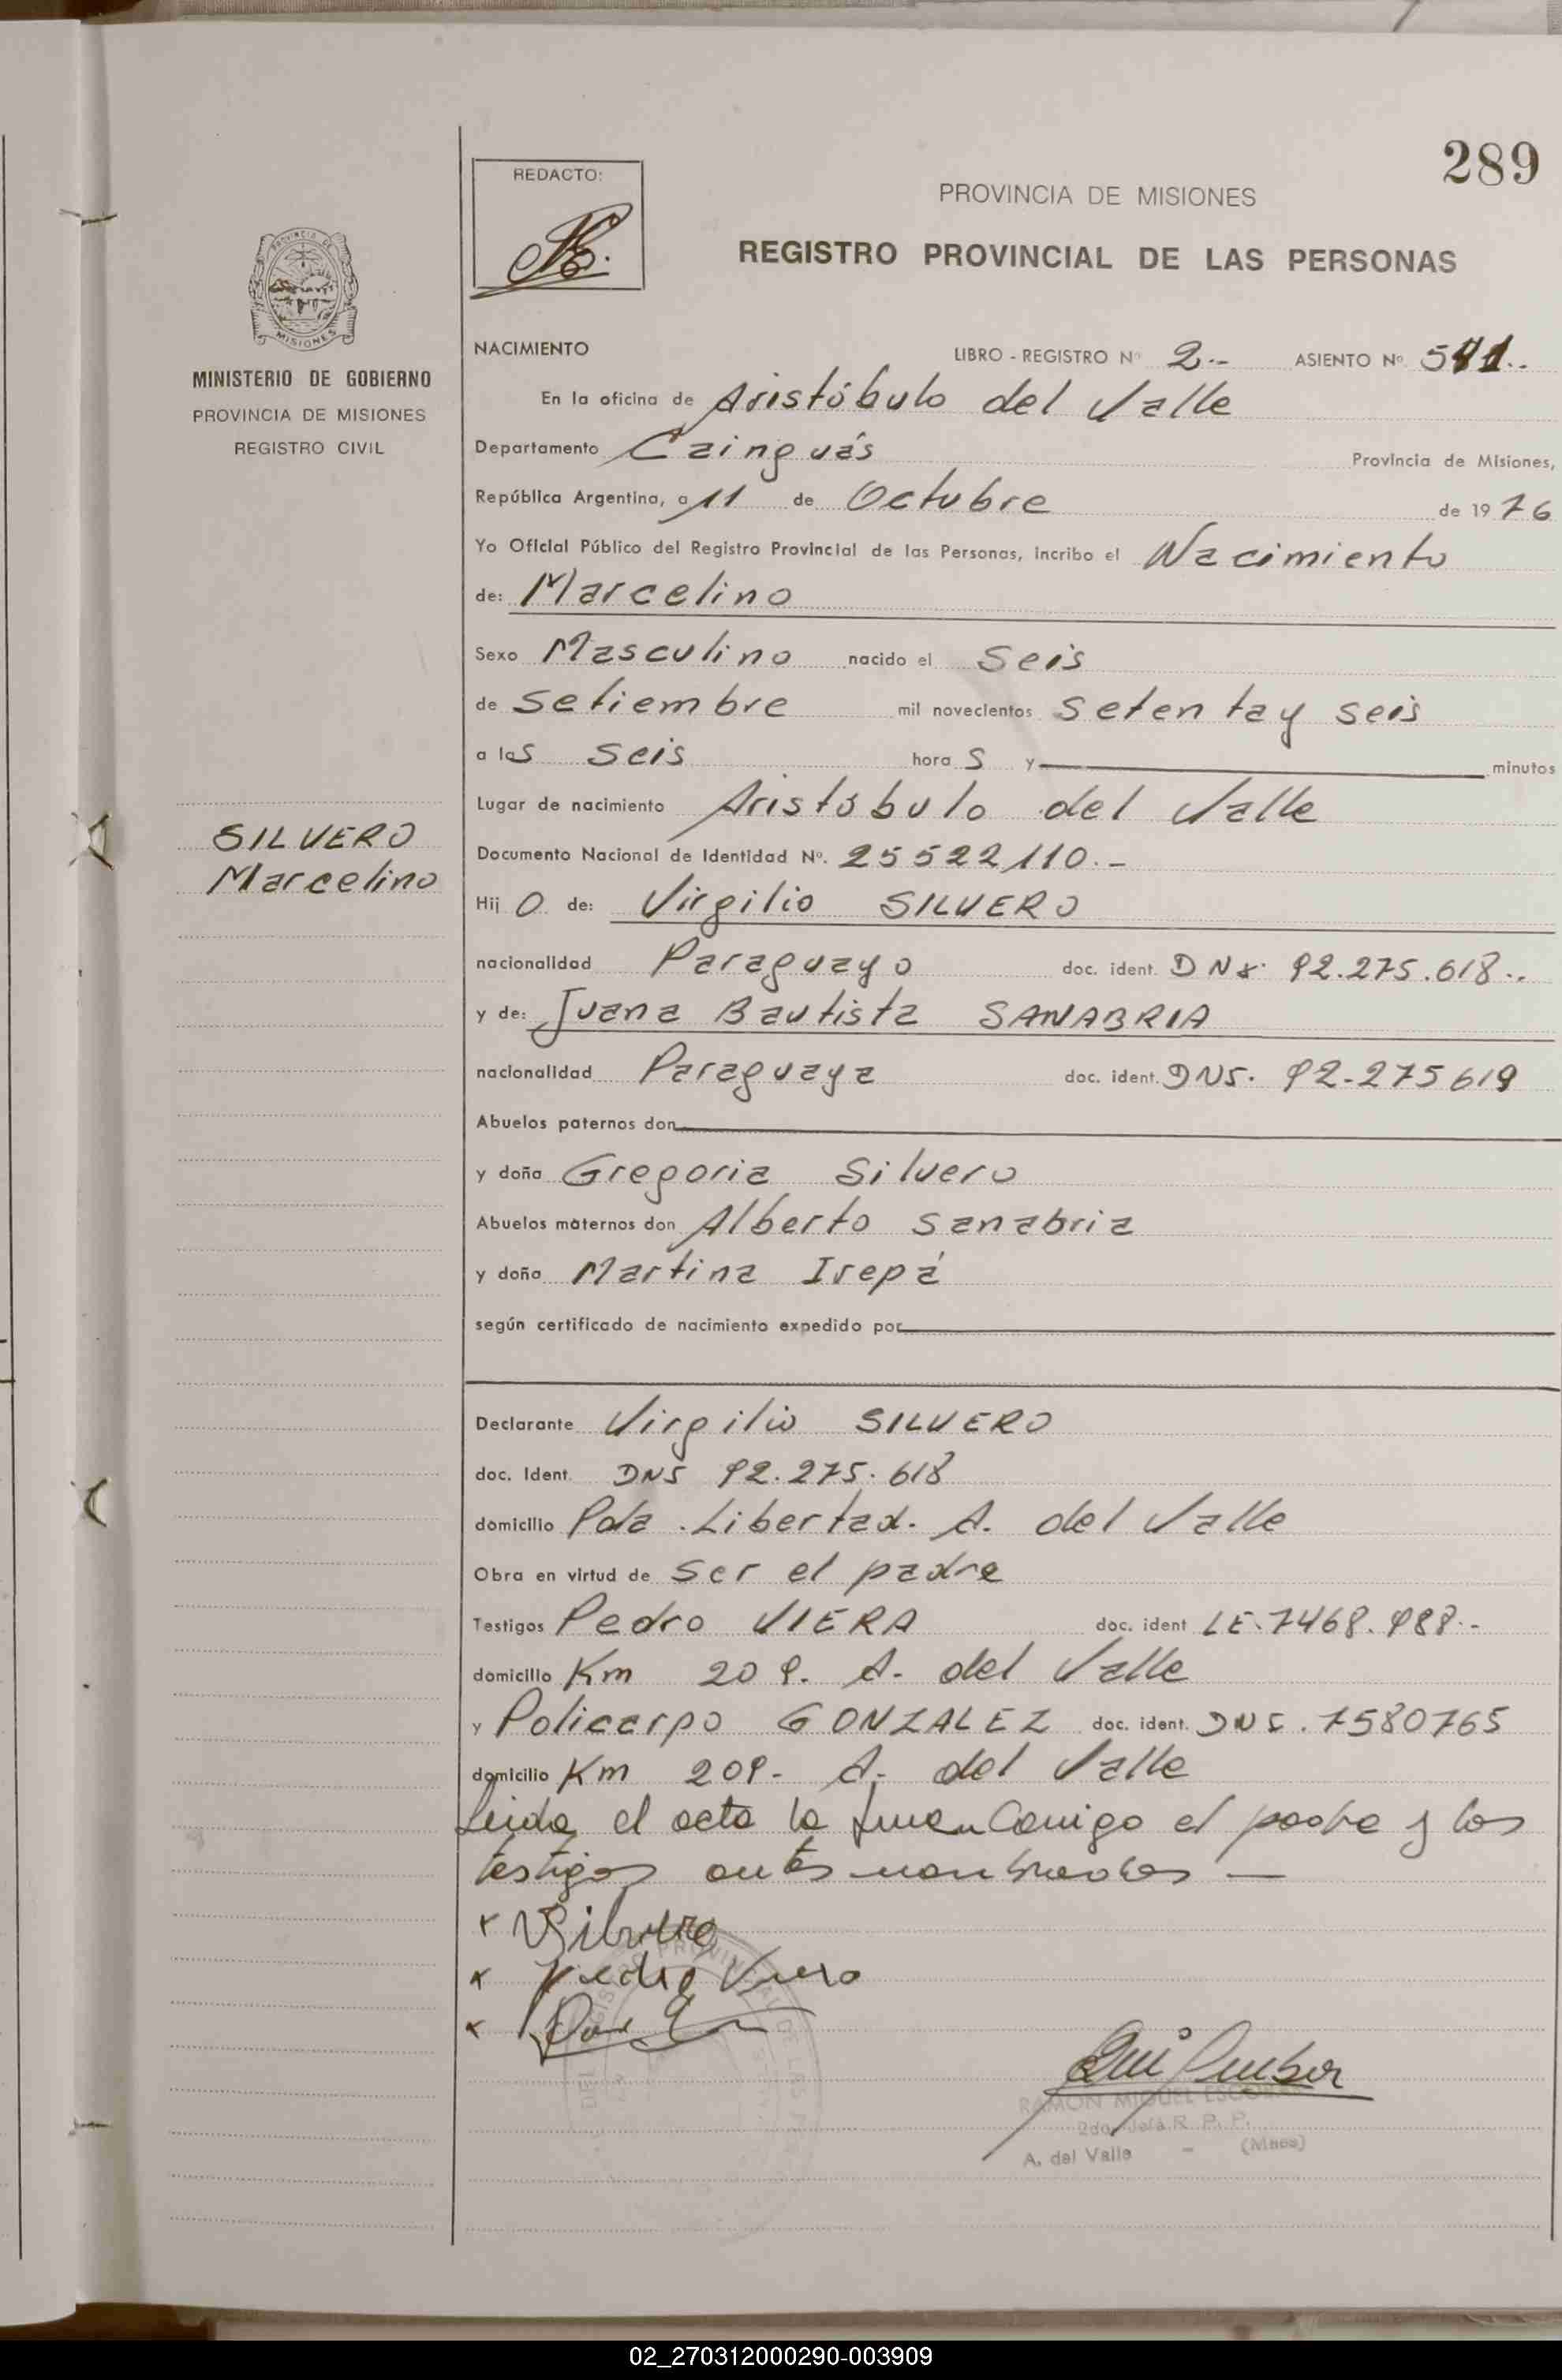 289
REDACTO:
PROVINCIA DE MISIONES
REGISTRO PROVINCIAL DE LAS PERSONAS
PROVINCIA DE
MISIONES
MINISTERIO DE GOBIERNO
PROVINCIA DE MISIONES
REGISTRO CIVIL
SILVERO
Marcelino
NACIMIENTO LIBRO - REGISTRO Nº 2.- ASIENTO Nº
En la oficina de Aristóbulo del Valle
Departamento Cainguás Provincia de Misiones,
República Argentina, a 11 de Octubre de 1976
Yo Oficial Público del Registro Provincial de las Personas, incribo el Nacimiento
de: Marcelino
Sexo Masculino nacido el seis
de setiembre mil novecientos setenta y seis
a las seis horas y minutos
Lugar de nacimiento Aristóbulo del Valle
Documento Nacional de Identidad Nº. 25522110.-
Hijo de: Virgilio SILVERO
nacionalidad Paraguayo doc. ident. 92.275.618..
y de: Juana Bautista SANABRIA
nacionalidad Paraguaya doc. ident. 92-275619
Abuelos paternos don
y doña Gregoria Silvero
Abuelos maternos don Alberto Sanabria
y doña Martina Irepá
según certificado de nacimiento expedido por
Declarante Virgilio SILVERO
doc. Ident. 92.275.618
domicilio Pda. Libertad. A. del Valle
Obra en virtud de ser el padre
Testigos Pedro VIERA doc. ident LE. 7468.988.-
domicilio Km 209. A. del Valle
y Policarpo GONZALEZ doc. ident. 7580765
domicilio Km 209- A. del Valle
Leida el acta la firman conmigo el padre y los
testigos antes nombrados —
x
x Pedro Viera
x
RAMON MIGUEL ESCOBAR
2do. Jefe R. P. P.
A. del Valle - (Mnes)
02_270312000290-003909